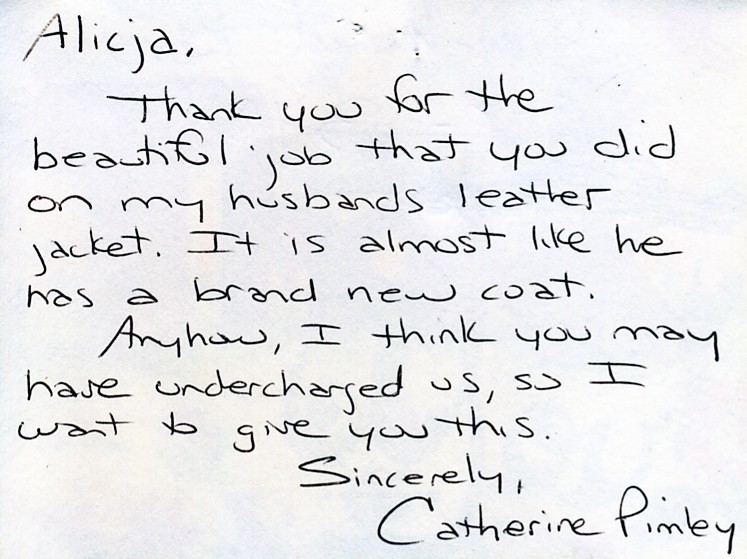 Alicja,
Thank you for the
beautiful job that you did
on my husbands leather
jacket. It is almost like he
has a brand new coat.
Anyhow, I think you may
have undercharged us, so I
want to give you this.
Sincerely,
Catherine Pimley